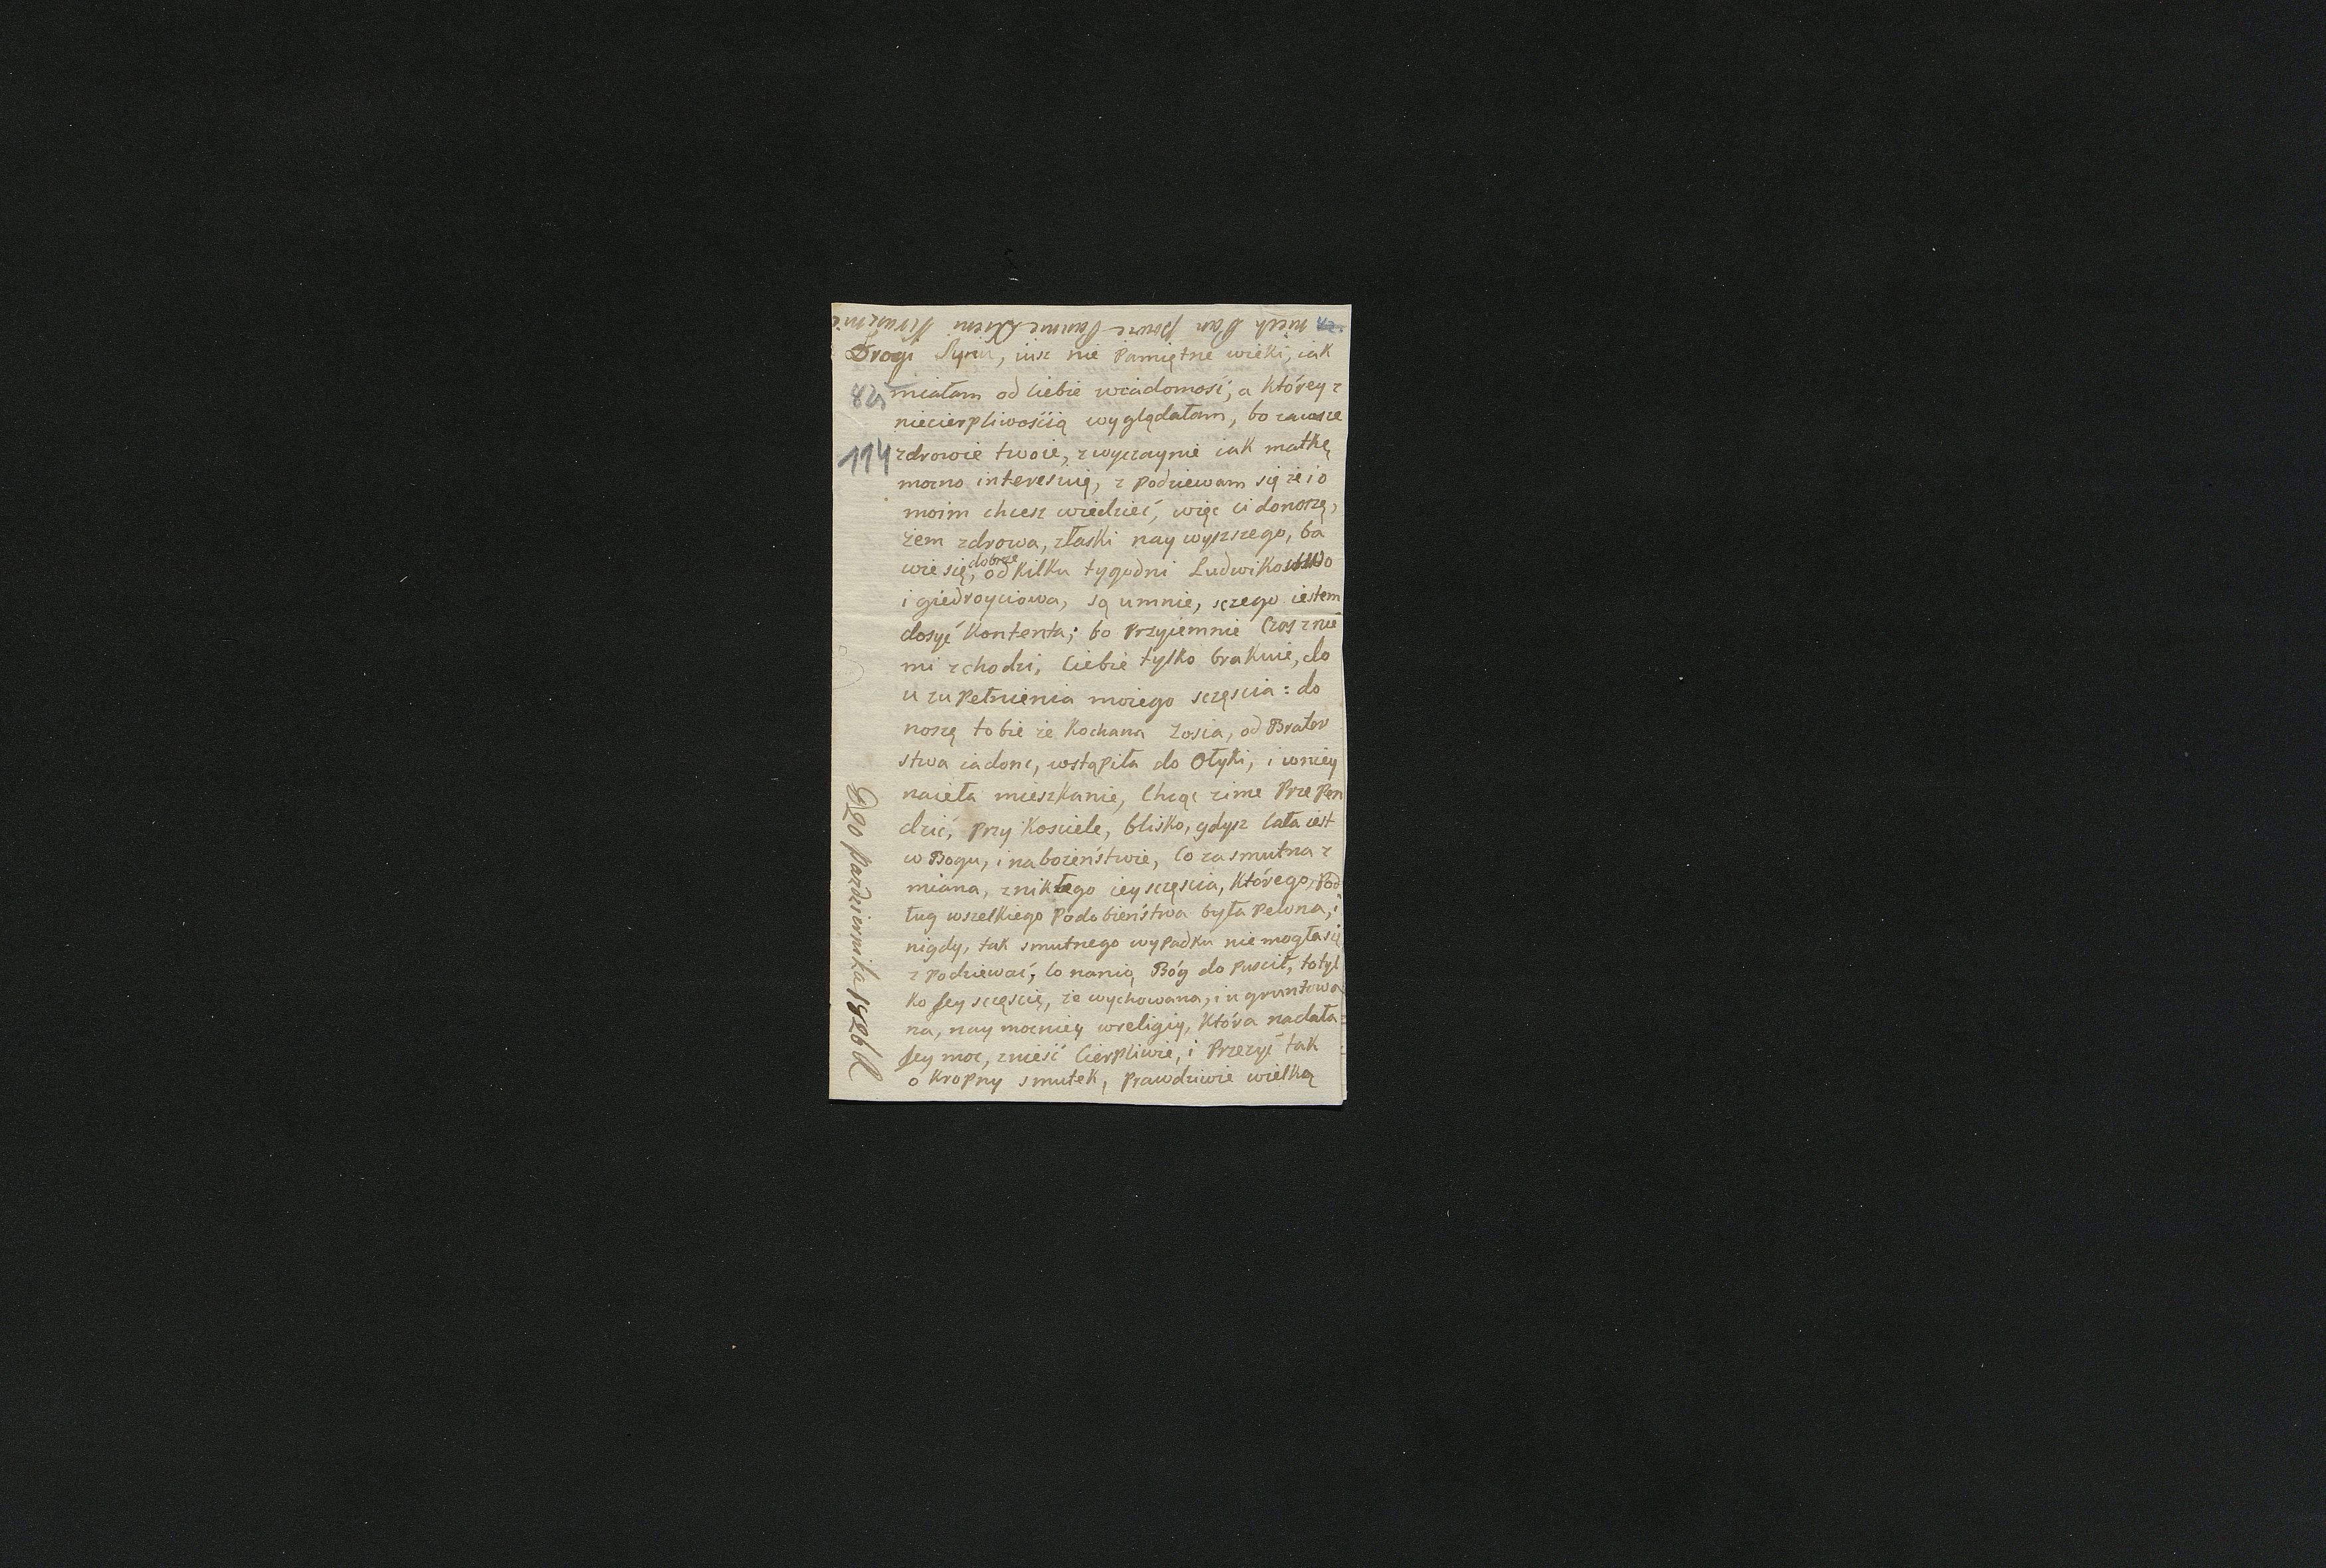 niech Pan powie Pannie
Drogi Synu, iusz nie Pamiętne wieki, iak
82
miałam od Ciebie wiadomość; a Którey z
niecierpliwością wyglądałam, bo zawsze
114
zdrowie twoie, zwyczaynie iak matkę
mocno interesuię, z podziewam się że i o
moim chcesz wiedzieć, więc ci donoszę,
żem zdrowa, złaski nay wyszszego, ba
wie się, dobrze od Kilku tygodni Ludwikowstwo
i giedroyciowa, są umnie, sczego iestem
dosyć Kontenta; bo Przyiemnie Czas znie
mi zchodzi, Ciebie tylko brakuie, do
u zu Pełnienia moiego sczęscia: do
noszę tobie że Kochana Zosia, od Brater
stwa iadonc, wstąpiła do Ołyki, i wniey
naieła mieszkanie, Chcąc zime Prze Pen
dzić, Przy Kosciele, blisko, gdysz Cała iest
w Bogu, i nabożeństwie, Co za smutna z
miana, znikłego iey sczęscia, Którego, Pod
ług wszelkiego Podobieństwa była Pewna, i
nigdy, tak smutnego wypadku nie mogła się
z podziewać, Co nanią Bóg do Puscił, to tyl
Ko Jey sczęscię, że wychowana, i u gruntowa
na, nay mocniey wreligiy, Która nadała
Jey moc, znieść Cierpliwie, i Przeżyć tak
o Kropny smutek, Prawdziwie wielką
D 20 pazdziernika 1826 R